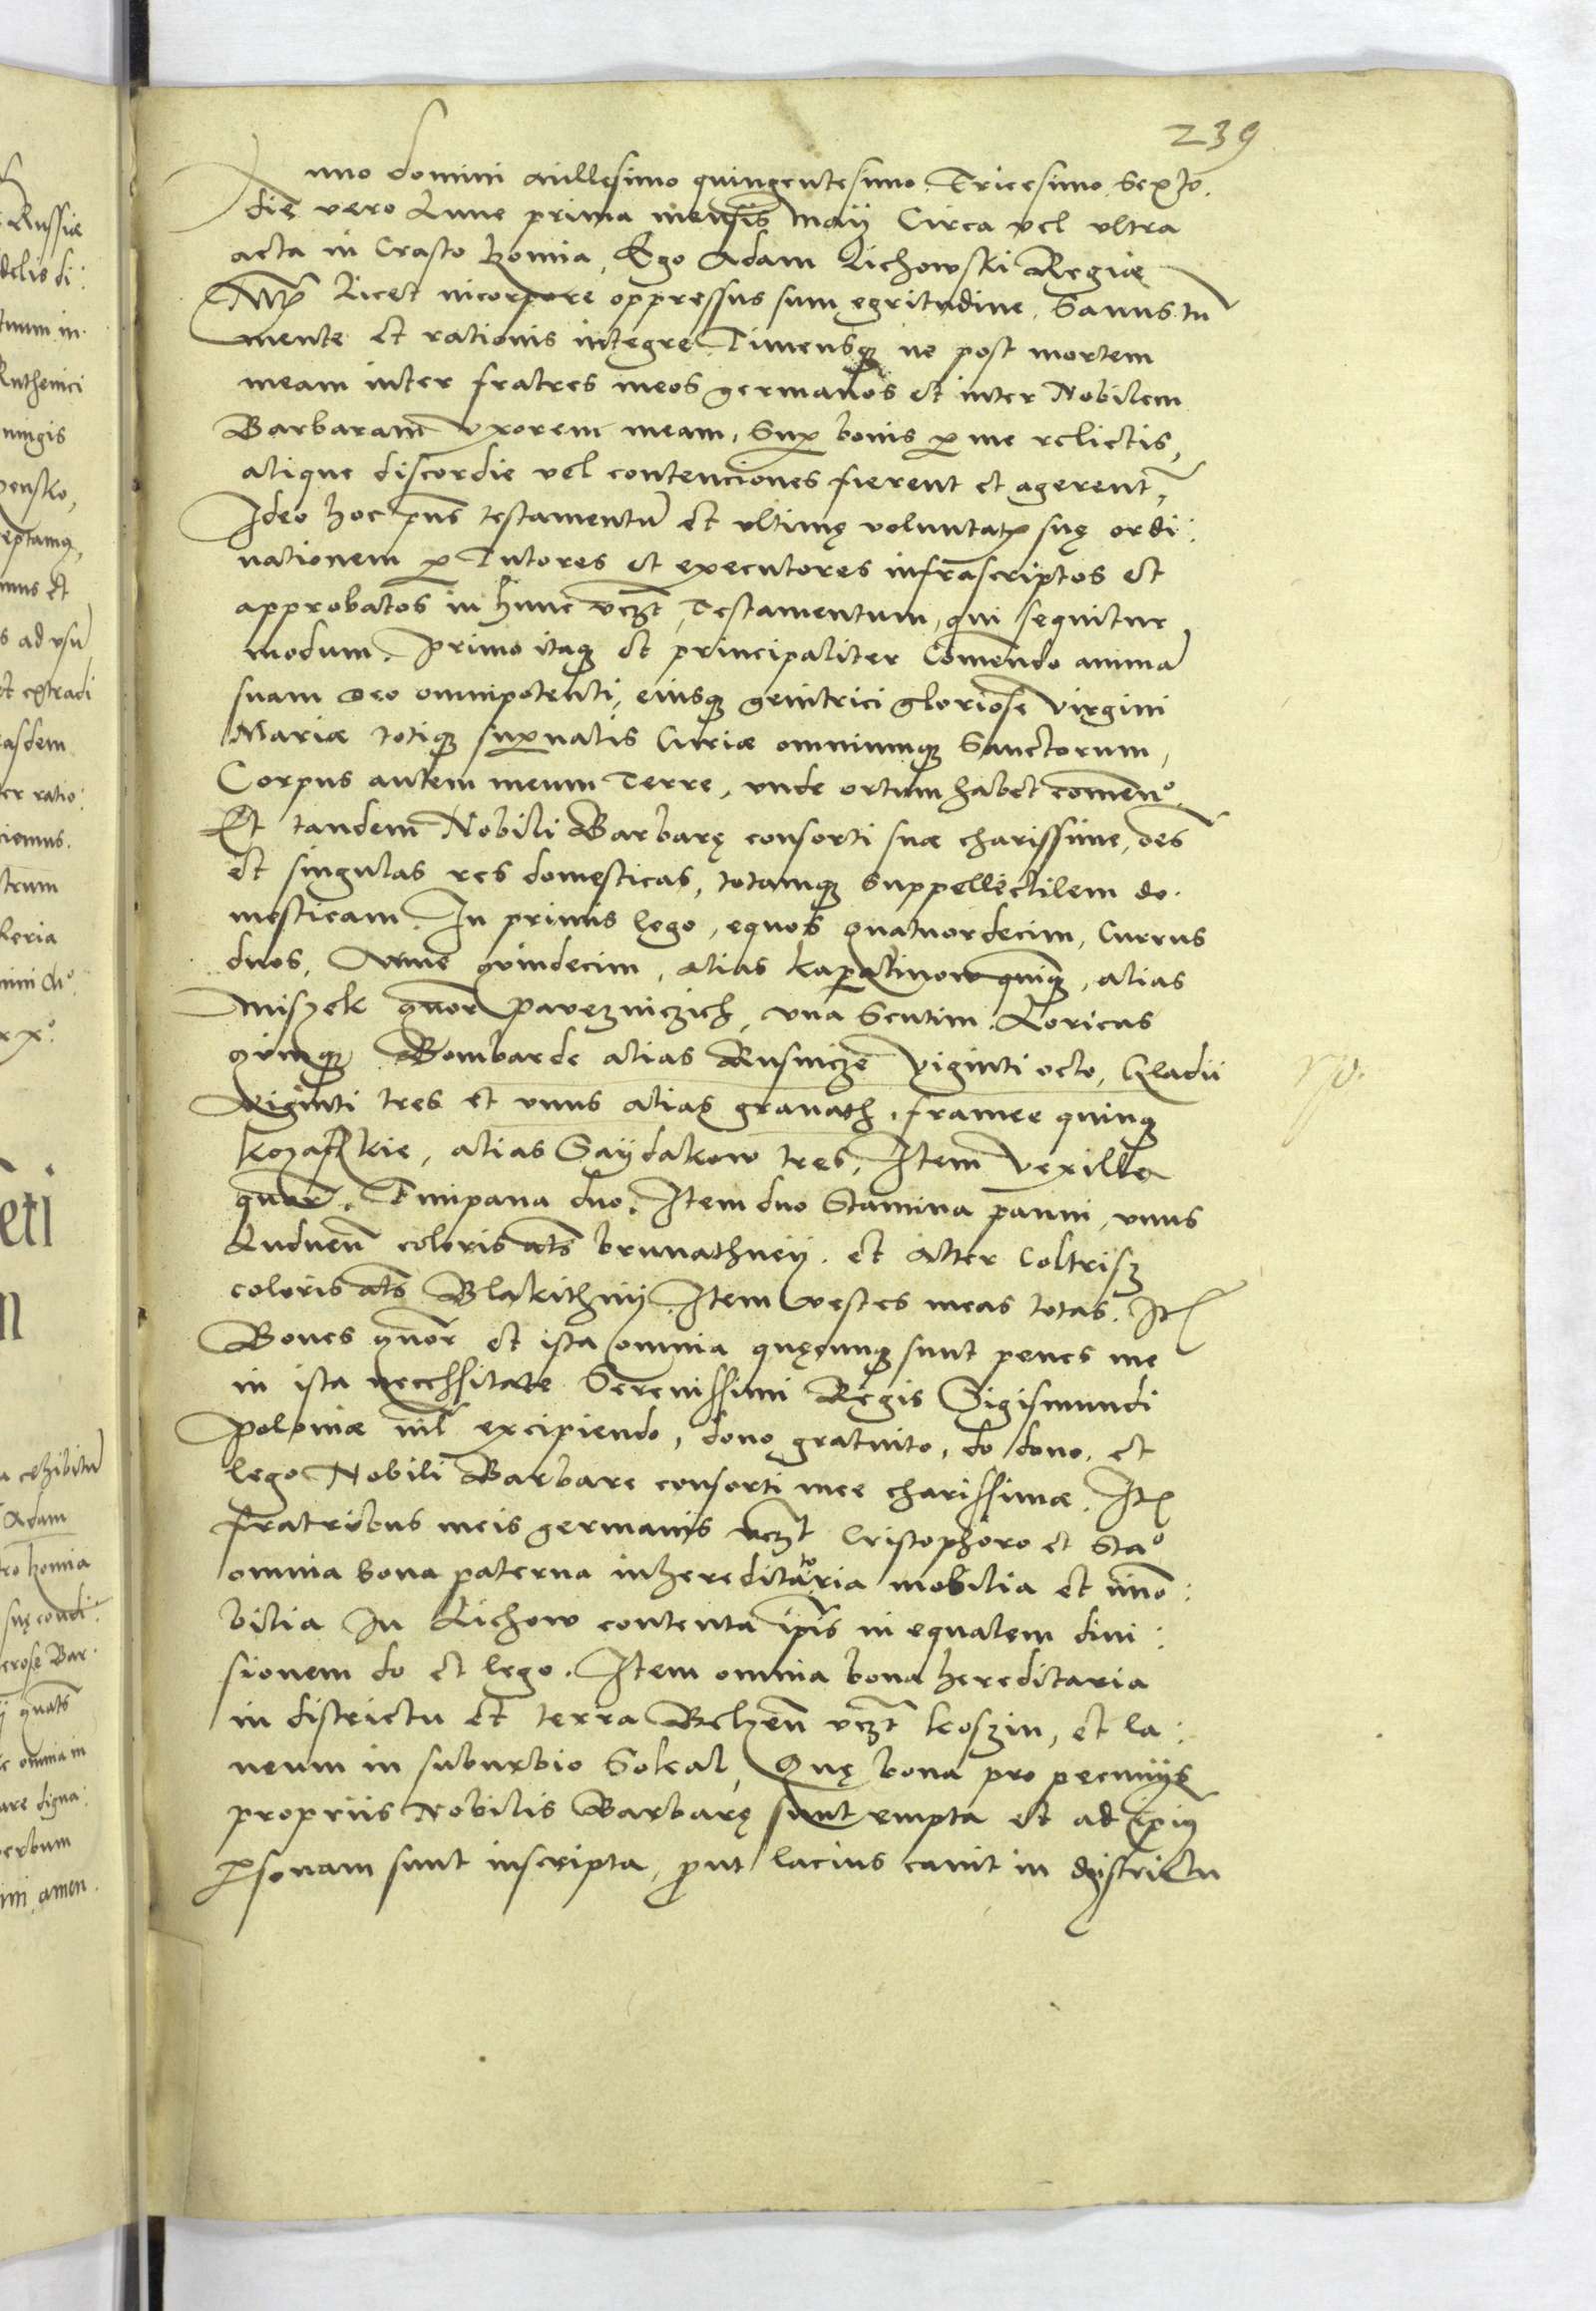 239
Anno domini millesimo quingentesimo Tricesimo Sexto.
die vero Lune prima mensis Maij Circa vel ultra
acta in Crasto komia, Ego Adam Lichowski Regiæ
Licet in corpore oppressus sum egritudine, Sanus tn̄
mente et rationis integre Timensq₃ ne post mortem
meam inter fratres meos germanos et inter Nobilem
Barbaram uxorem meam, Sup bonis p me relictis,
alique discordie vel contenciones fierent et agerent,
Ideo hoc pn̄s testamentū et ultimę voluntat suę ordi:
nationem p Tutores et executores infrascriptos et
approbatos in hunc vczt, Testamentum, qui sequitur
modum. Primo itaq₃ et principaliter Com̄endo animā
suam deo omnipotenti, eiusq₃ genitrici gloriose virgini
Mariæ totiq₃ supnalis Curiæ omniumq₃ Sanctorum,
Corpus autem meum Terre, unde ortum habet com̄en°.
Et tandem Nobili Barbarę consorti suæ charissime, oēs
et singulas res domesticas, totamq₃ suppellectilem do.
mesticam. In primis lego, equos quatuordecim, Currus
duos, Arme quindecim, alias kapalinow quinq₃, alias
Miszek quor pavezniczich, una Scutim. Loricas
quinq₃ Bombarde alias Rusnicze viginti octo, Gladii
viginti tres et unus alias granath, framee quinq₃
kozaczkie, alias Saijdakow tres, Item vexilla
quor. Timpana duo. Item duo Stamina panni, unus
Luduen̄ coloris al̄s brunathneij. et alter Coltrisz
coloris al̄s Blakithnij. Item vestes meas totas. It
Boves quor et ista omnia quęcunq₃ sunt penes me
in ista necessitate Serenissimi Regis Sigismundi
Poloniæ nil excipiendo, dono gratuito, do dono, et
lego Nobili Barbare consorti mee charissimæ. It
fratribus meis germanis vczt Cristophoro et Sta°
omnia bona paterna inhereditatoria mobilia et im̄o:
bilia In Lichow contenta ip̄is in equalem divi:
sionem do et lego. Item omnia bona hereditaria
in districtu et terra Belzen̄ vczt koszin, et la:
neum in suburbio Sokal, Quę bona pro pecunijs
propriis Nobilis Barbarę sunt empta et ad ip̄ius
psonam sunt inscripta, prout lacius canit in districtu